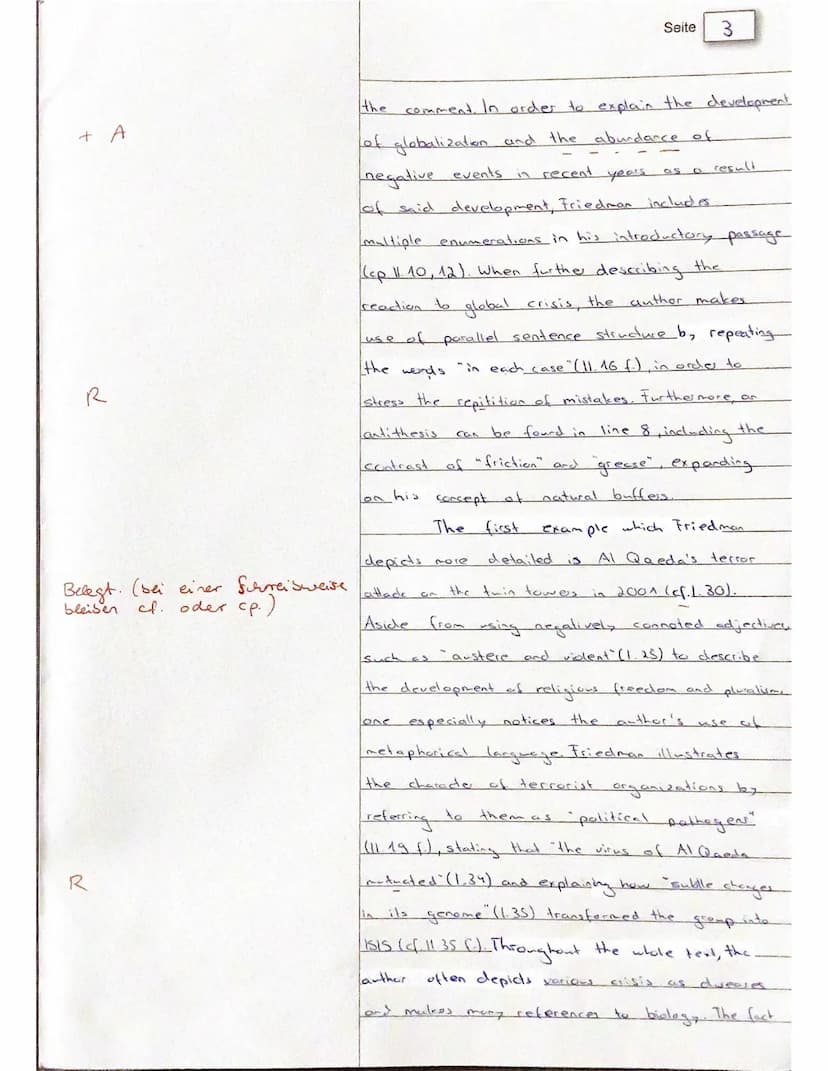 Seite 3
the comment. In order to explain the development
+ A
of globalization and the abundance of
negative events in recent years as a result
of said development, Friedman includes
multiple enumerations in his introductory passage
(cp ll. 10, 12). When further describing the
reaction to global crisis, the author makes
use of parallel sentence structure by repeating
the words "in each case" (ll. 16 f.), in order to
R
stress the repitition of mistakes. Furthermore, an
antithesis can be found in line 8, including the
contrast of "friction" and "grease", expanding
on his concept of natural buffers.
The first example which Friedman
depicts more detailed is Al Qaeda's terror
Belegt. (bei einer Schreibweise
bleiben cf. oder cp.)
attack on the twin towers in 2001 (cf. l. 30).
Aside from using negatively connoted adjectives
such as "austere and violent" (l. 25) to describe
the development of religious freedom and pluralism,
one especially notices the author's use of
metaphorical language. Friedman illustrates
the character of terrorist organizations by
referring to them as "political pathogens"
(ll. 19 f.), stating that "the virus of Al Qaeda
R
mutated" (l. 34) and explaining how "subtle changes
in its genome" (l. 35) transformed the group into
ISIS (cf. ll. 35 f.). Throughout the whole text, the
author often depicts various crisis as diseases
and makes many references to biology. The fact